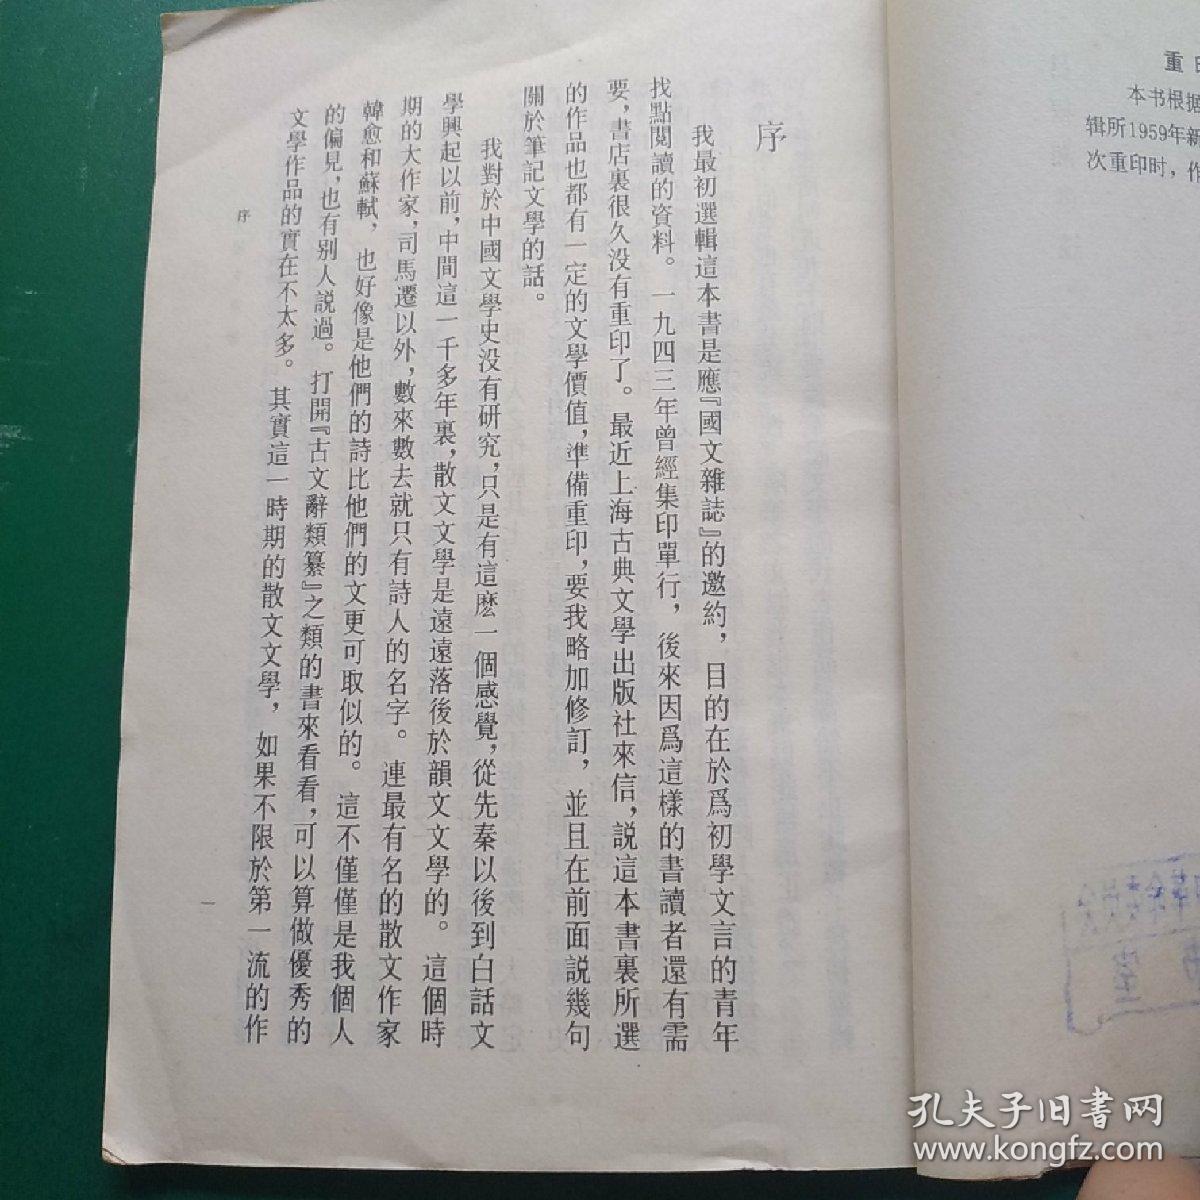 序
我最初選輯這本書是應『國文雜誌』的邀約，目的在於爲初學文言的青年
找點閱讀的資料。一九四三年曾經集印單行，後來因爲這樣的書讀者還有需
要，書店裏很久没有重印了。最近上海古典文學出版社來信，説這本書裏所選
的作品也都有一定的文學價值，準備重印，要我略加修訂，並且在前面説幾句
關於筆記文學的話。
我對於中國文學史没有研究，只是有這麽一個感覺，從先秦以後到白話文
學興起以前，中間這一千多年裏，散文文學是遠遠落後於韻文文學的。這個時
期的大作家，司馬遷以外，數來數去就只有詩人的名字。連最有名的散文作家
韓愈和蘇軾，也好像是他們的詩比他們的文更可取似的。這不僅僅是我個人
的偏見，也有别人説過。打開『古文辭類纂』之類的書來看看，可以算做優秀的
文學作品的實在不太多。其實這一時期的散文文學，如果不限於第一流的作
序
一
重
本书根据
辑所1959年新
次重印时，作
孔夫子旧书网
www.kongfz.com